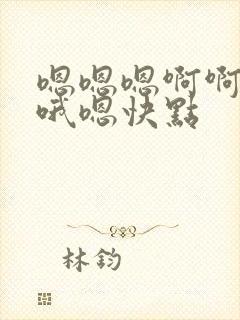 嗯嗯嗯啊啊
哦嗯快點
林鈞